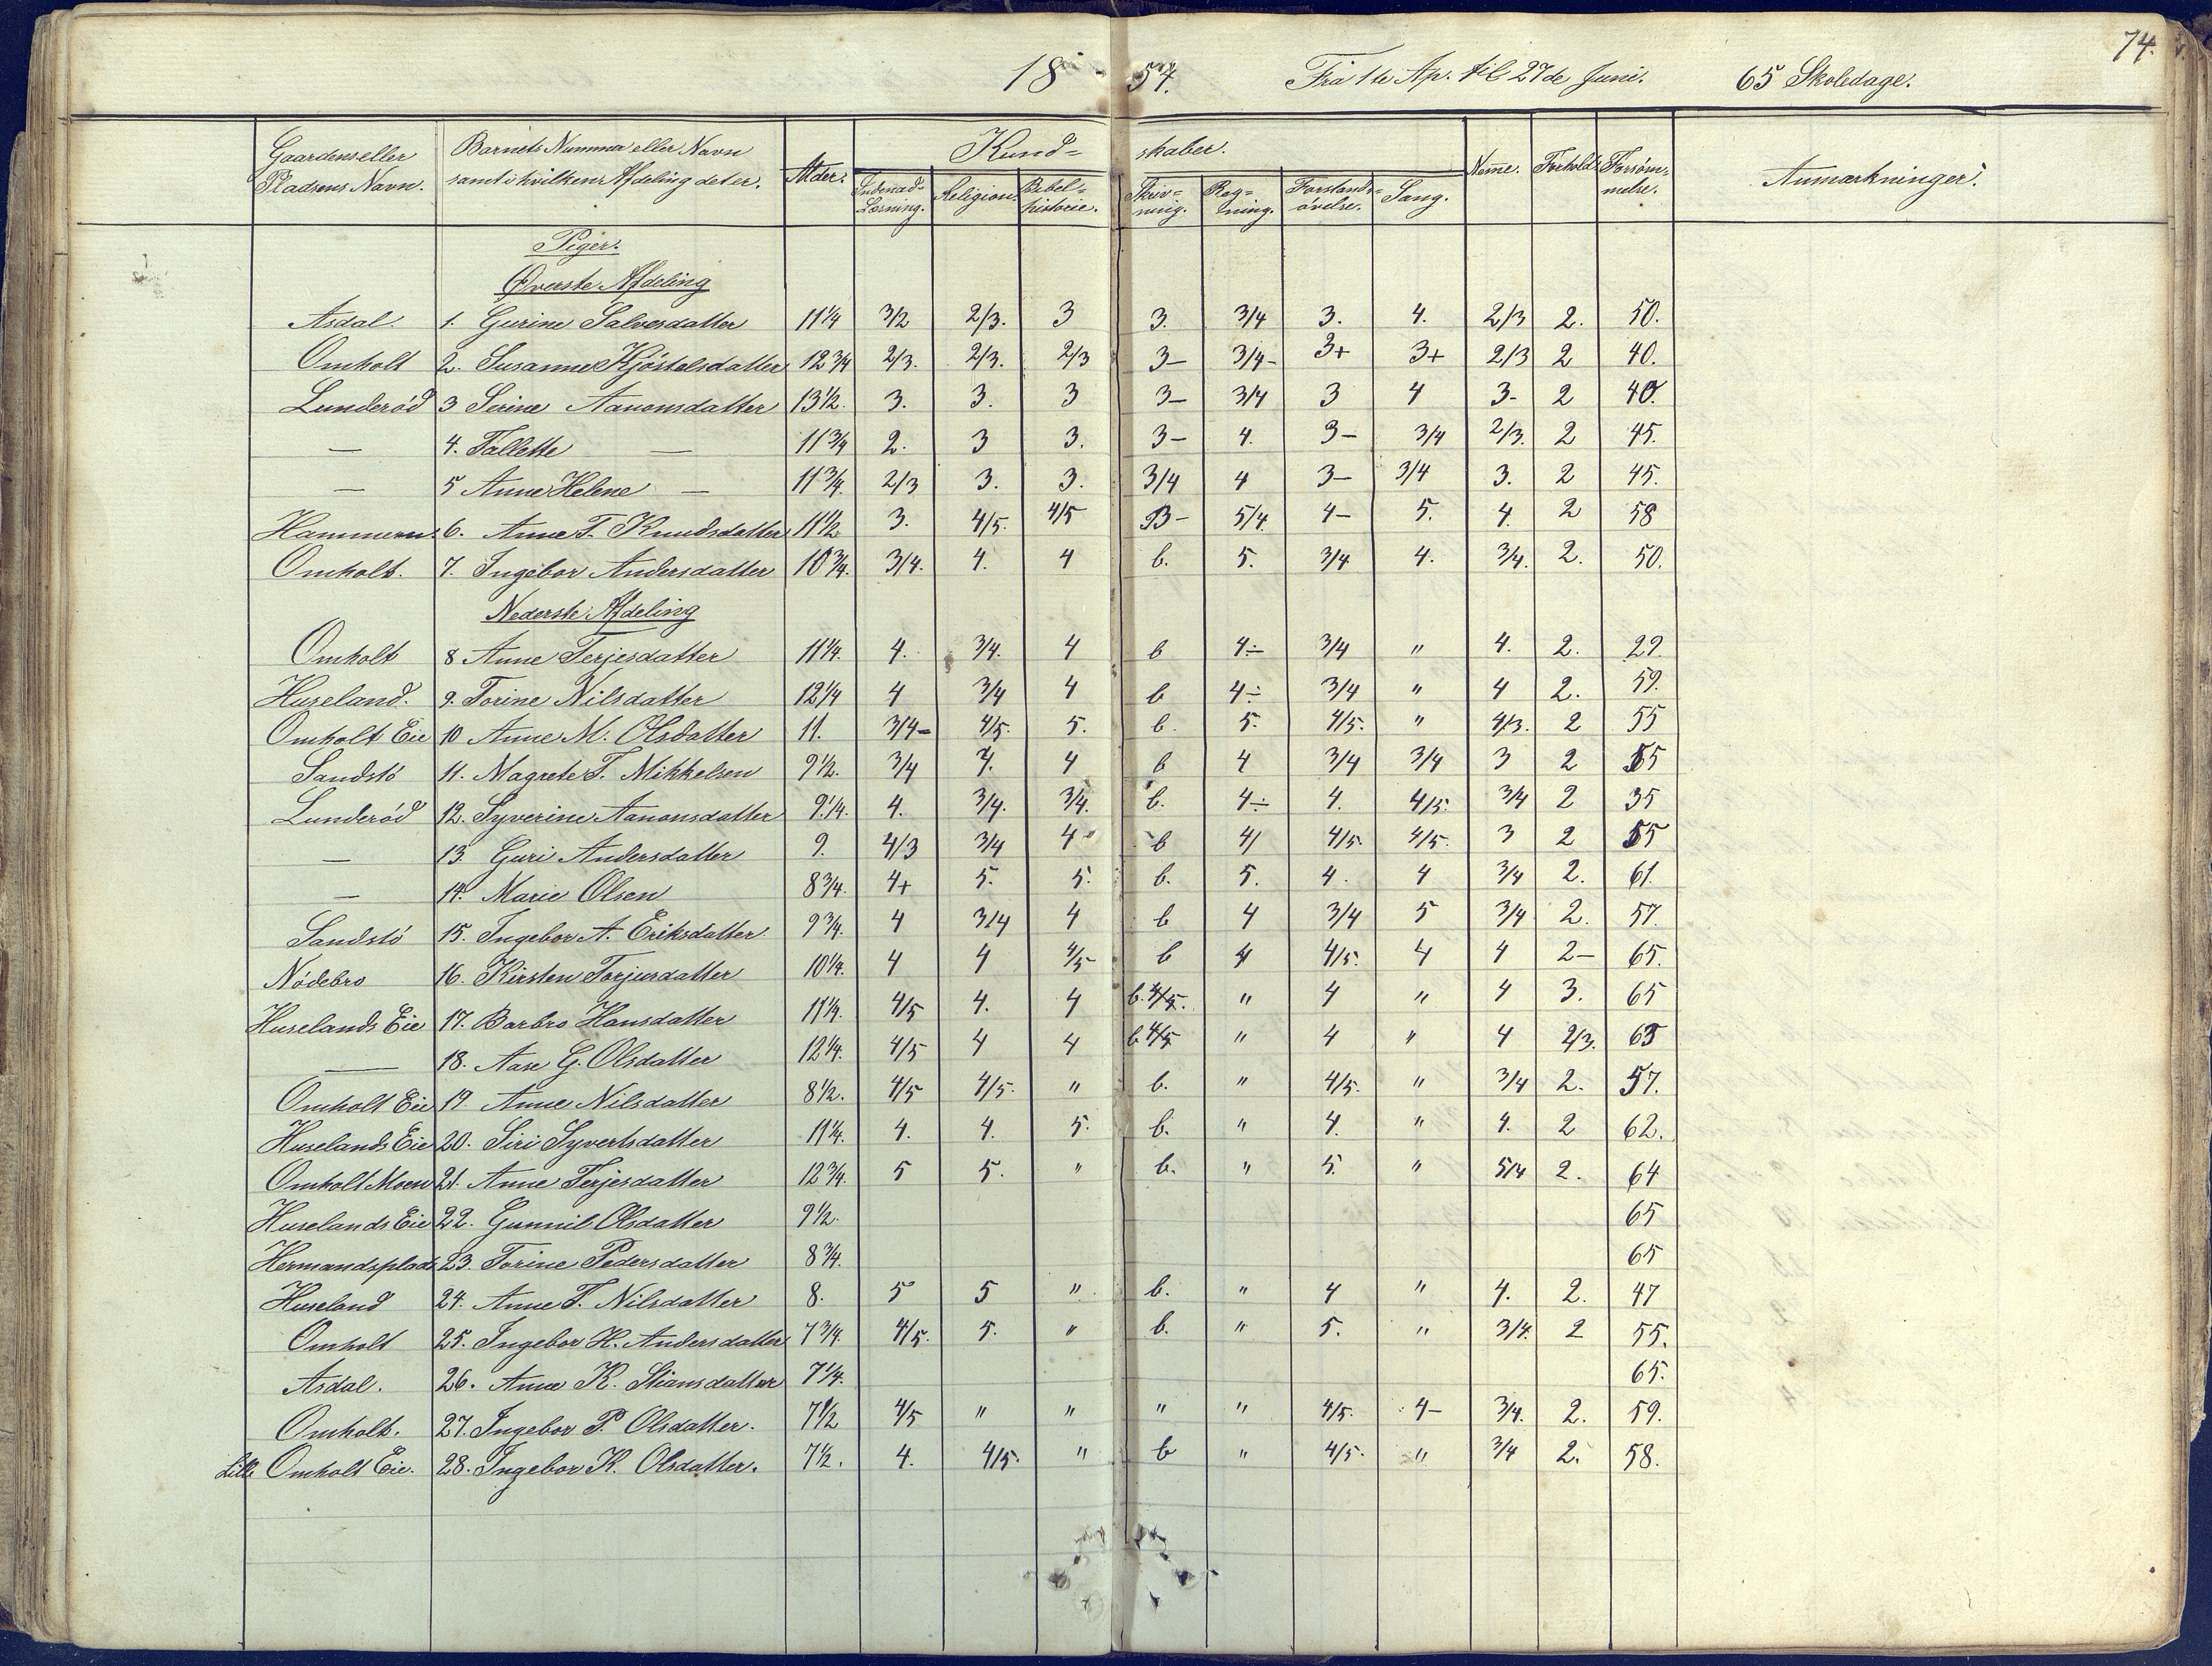 74.
1854. Fra 1te Ap. til 27de Juni. 65 Skoledage.
Gaardens eller Pladsens Navn. | Barnets Nummer eller Navn samt i hvilken Afdeling det er. | Alder. | Kundskaber. | Nemme. | Forhold. | Forsømmelse. | Anmærkninger.
Indenad-Læsning. | Religion. | Bibelhistorie. | Skrivning. | Regning. | Forstandsøvelse. | Sang.
Piger.
Øverste Afdeling
Asdal. 1. Gurine Salvesdatter 11 1/4 3/2 2/3. 3 3. 3/4 3. 4. 2/3 2. 50.
Omholt 2. Susanne Kjöstelsdatter 12 3/4 2/3. 2/3. 2/3 3- 3/4- 3+ 3+ 2/3 2 40.
Lunderöd 3 Serine Aanonsdatter 13 1/2. 3. 3. 3 3- 3/4 3 4 3- 2 40.
— 4. Tallette — 11 3/4 2. 3 3. 3- 4. 3- 3/4 2/3. 2 45.
— 5 Anne Helene — 11 3/4. 2/3 3. 3. 3/4 4 3- 3/4 3. 2 45.
Hammeren. 6. Anne T. Knudsdatter 11 1/2 3. 4/5. 4/5 B- 5/4. 4- 5. 4. 2 58
Omholt. 7. Ingebor Andersdatter 10 3/4. 3/4. 4. 4 b. 5. 3/4 4. 3/4. 2. 50.
Nederste Afdeling
Omholt 8 Anne Terjesdatter 11 1/4. 4. 3/4. 4 b 4÷ 3/4 " 4. 2. 29.
Huseland. 9. Torine Nilsdatter 12 1/4 4 3/4 4 b 4÷ 3/4 " 4 2. 59.
Omholt Eie 10 Anne M. Olsdatter 11. 3/4- 4/5. 5. b. 5. 4/5. " 4/3. 2 55
Sandstö 11. Magrete T. Mikkelsen 9 1/2. 3/4 4. 4 b 4 3/4 3/4 3 2 55
Lunderöd 12. Syverine Aanonsdatter 9 1/4. 4. 3/4. 3/4. b. 4÷ 4. 4/5. 3/4 2 35
— 13 Guri Andersdatter 9. 4/3 3/4 4 b 4/ 4/5 4/5. 3 2 55
— 14. Marie Olsen 8 3/4. 4+ 5. 5. b. 5. 4. 4 3/4 2. 61.
Sandstö 15. Ingebor A. Eriksdatter 9 3/4. 4 3/4 4 b 4 3/4 5 3/4 2. 57.
Nödebro 16. Kirsten Torjusdatter 10 1/4. 4 4 4/5 b 4 4/5. 4 4 2- 65.
Huselands Eie 17. Barbro Hansdatter 11 1/4. 4/5 4. 4 b. 4/5. " 4 " 4 3. 65
— 18. Aase G. Olsdatter 12 1/4. 4/5 4 4 b 4/5 " 4 " 4 2/3. 65
Omholt Eie 19. Anne Nilsdatter 8 1/2. 4/5 4/5. " b. " 4/5. " 3/4 2. 57.
Huselands Eie 20. Siri Syvertsdatter 11 1/4. 4. 4. 5. b. " 4. " 4. 2 62.
Omholt Moen 21. Anne Terjesdatter 12 3/4. 5 5. " b. " 5. " 5/4 2. 64
Huselands Eie 22. Gunnil Olsdatter 9 1/2. 65
Hermandsplads 23. Torine Pedersdatter 8 3/4. 65
Huseland 24. Anne T. Nilsdatter 8. 5 5 " b. " 4 " 4. 2. 47
Omholt 25. Ingebor H. Andersdatter 7 3/4. 4/5. 5. " b. " 5. " 3/4. 2 55.
Asdal. 26. Anne K. Stiansdatter 7 1/4. 65.
Omholt. 27. Ingebor P. Olsdatter. 7 1/2 4/5 " " " " 4/5. 4- 3/4. 2. 59.
Lille Omholt Eie. 28. Ingebor K. Olsdatter. 7 1/2. 4. 4/5. " b " 4/5. " 3/4 2. 58.